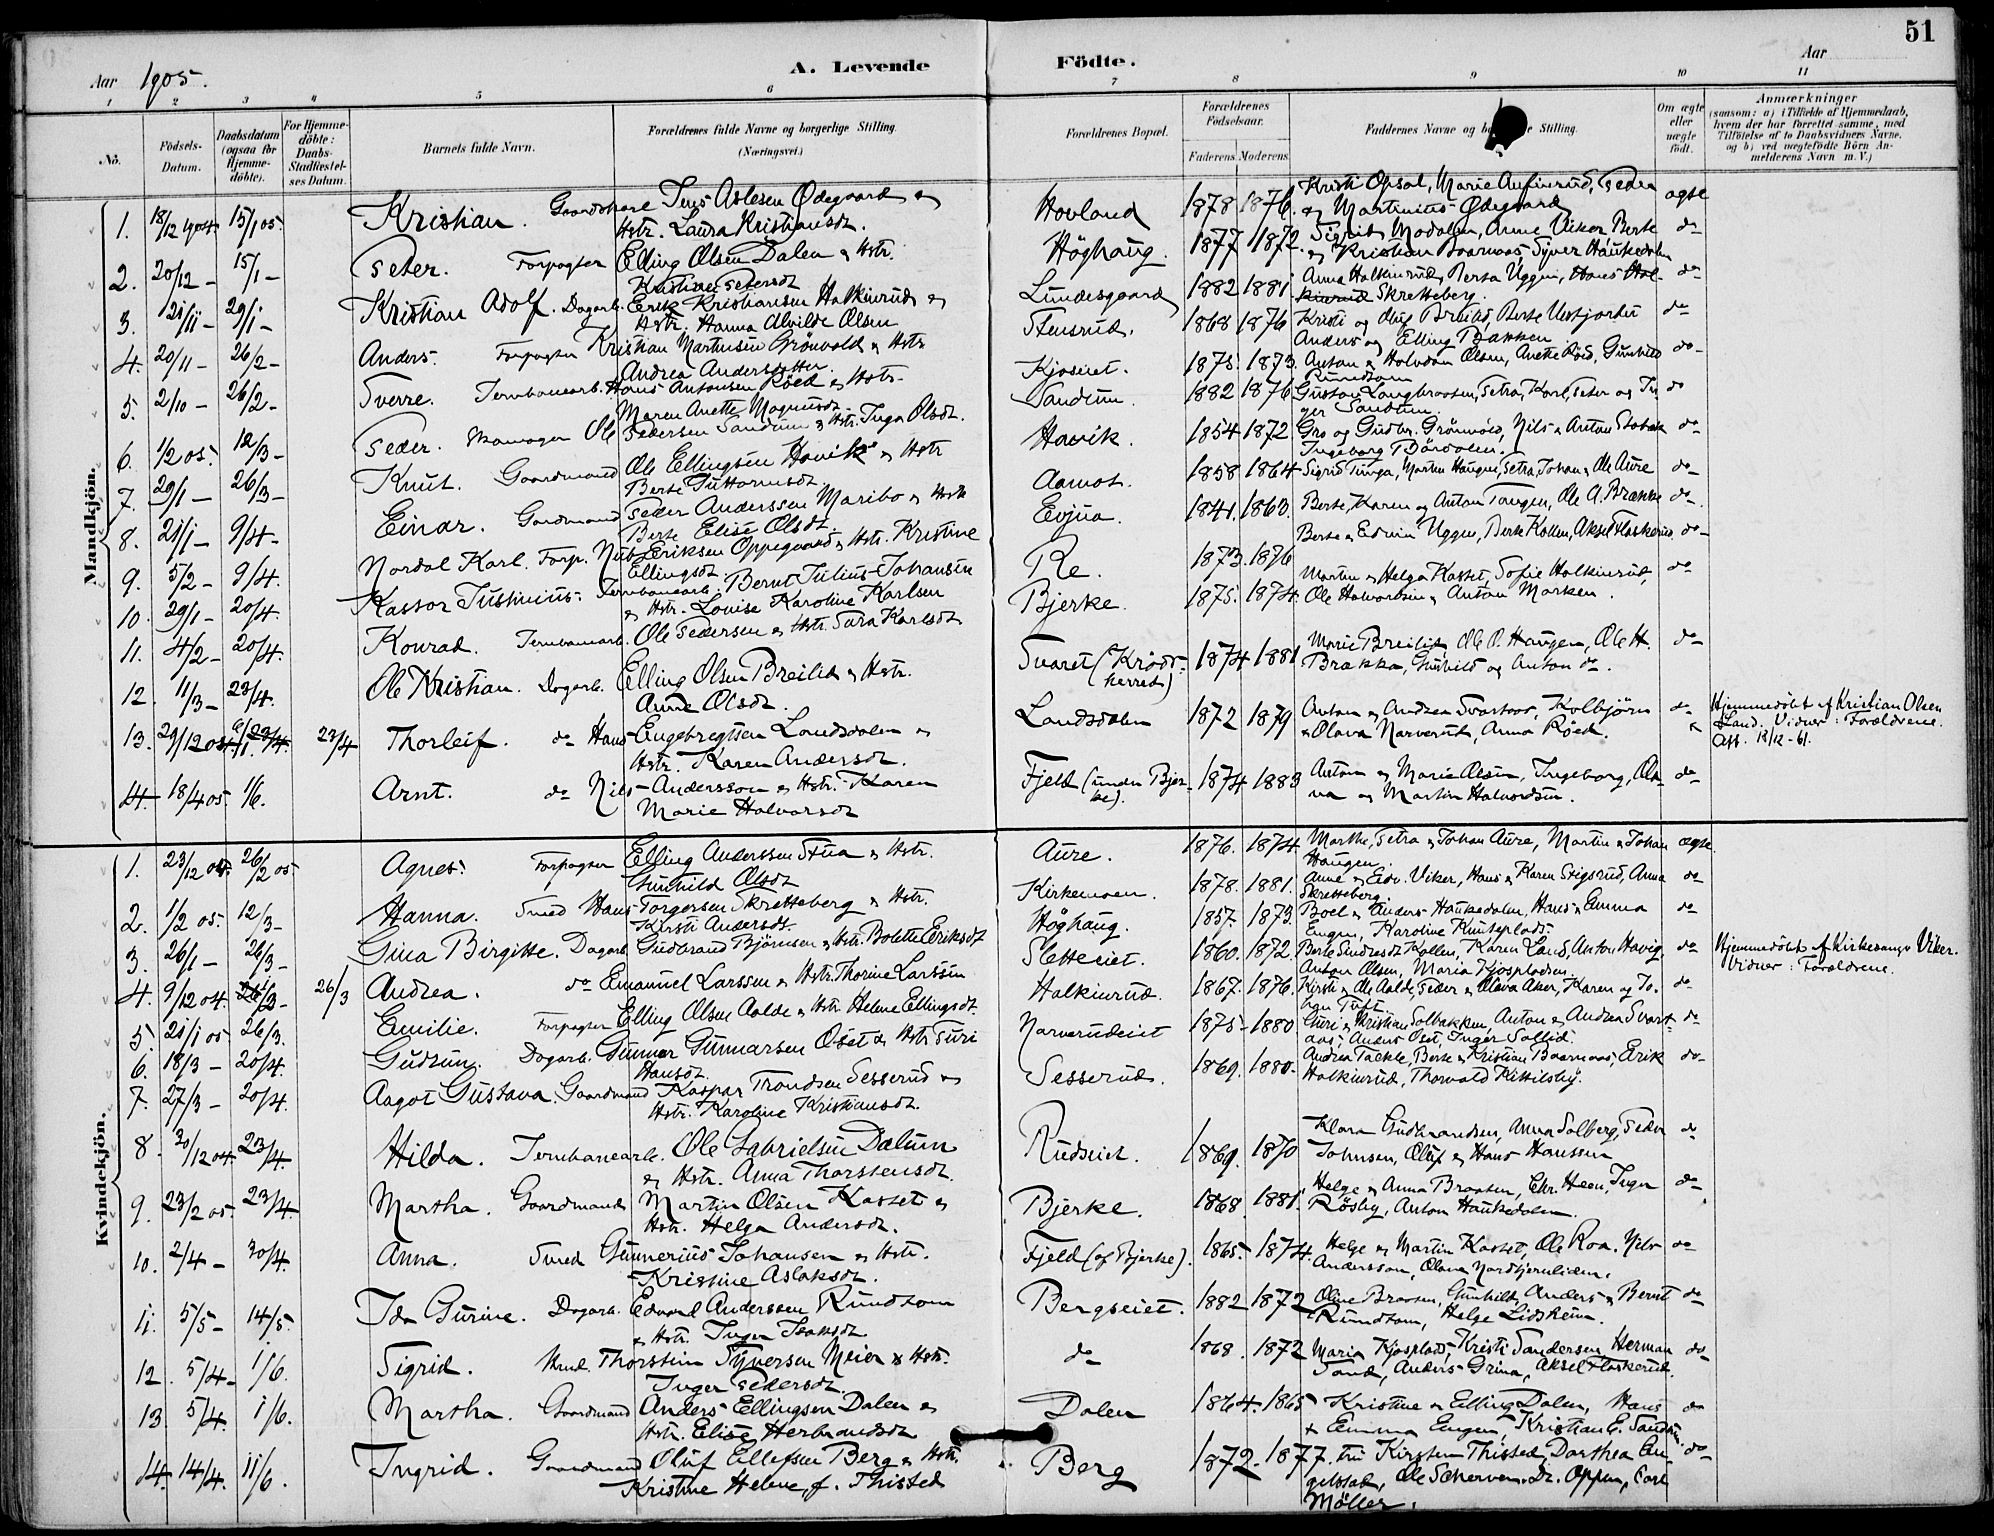 51
Aar 1905.
A. Levende Födte.
Aar
1 2 3 4 5 6 7 8 9 10 11
No.
Födsels-Datum.
Daabsdatum (ogsaa for Hjemme-döbte).
For Hjemme-döbte: Daabs-Stadfæstel-ses Datum.
Barnets fulde Navn.
Forældrenes fulde Navne og borgerlige Stilling.
(Næringsvei.)
Forældrenes Bopæl.
Forældrenes Födselsaar.
Faderens Moderens
Faddernes Navne og Stilling.
Om ægte eller uægte födt.
Anmærkninger
(saasom: a) i Tilfælde af Hjemmedaab, hvem der har forrettet samme, med Tilföielse af to Daabsvidners Navne, og b) ved uægtefödte Börn An-melderens Navn m. V.)
Mandkjön.
1. 18/12 1904 15/1 05. Kristian. Gaardbruger Jens Aslesen Ødegaard og Hstr. Laura Kristiansdt. Hovland 1878 1876. Kristi Opsal, Marie Anfinrud, Peder og Martinius Ødegaard ægte
2. 20/12 - 15/1 - Peter. Forpagter Elling Olsen Dalen & Hstr. Kristine Pedersdt Höghaug. 1877 1872. Sigrid Modalen, Anne Viker, Berte og Kristian Baarnaas, Syver Haukedalen do
3. 21/11 - 29/1 - Kristian Adolf. Dagarb. Erik Kristiansen Halkinrud og Hstr. Hanna Alvilde Olsen Lundesgaard 1882 1881 Anna Halkinrud, Berta Uggen, Hans Skretteberg. do
4. 20/11 - 26/2 - Anders. Forpagter Kristian Martinsen Grönvold & Hstr Andrea Andersdatter. Stensrud. 1868 1876 Kristi og Oluf Breilid, Berte Vestjordet Anders og Elling Bakken do
5. 2/10 - 26/2 - Sverre. Jernbanearb. Hans Antonsen Röed & Hstr. Maren Anette Magnusdt. Kjöseiet. 1875. 1873. Anton & Halvdan Olsen, Anette Röed, Gunhild Rundtom do
6. 1/2 05. 12/3 - Peder. Skomager Ole Pedersen Sandum & Hstr. Inga Olsdt. Sandum. 1882 1876 Gustav Langbraaten, Petra, Karl, Peter og Inger Sandum. do
7. 29/1 - 26/3 - Knut. Gaardmand Ole Ellingsen Havik & Hstr Berte Guttormsdt. Havik. 1854 1872 Gro og Gudbr. Grönvold, Nils & Anton Ingeborg Bördalen. do
8. 21/1 - 9/4 - Einar. Gaardmand Peder Anderssen Maribo & Hstr Berte Elise Olsdt. Aamot. 1858 1864 Sigrid Tunga, Martin Haugen, Petra, Johan & Ole Aure do
9. 5/2 - 9/4. Nordal Karl. Forp. Nub Eriksen Oppegaard & Hstr. Kristine Ellingsdt. Evjua. 1841. 1863. Berte, Karen og Anton Tangen, Ole A. Brække do
10. 29/1 - 20/4. Kassor Justinius. Jernbanearb. Bernt Julius Johansen & Hstr. Louise Karoline Karlsen Re. 1873. 1876 Berte & Edvin Uggen, Berte Kollen, Aksel Flaskerud do
11. 4/2 - 20/4. Konrad. Jernbanearb. Ole Pedersen & Hstr. Sara Karlsdt Bjerke. 1875. 1874. Martin & Helga Kasset, Sofie Halkinrud, Ole Halvorsen & Anton Morken. do
12. 11/3 - 23/4. Ole Kristian. Dagarb. Elling Olsen Breilid & Hstr. Anne Olsdt. Svaret (Kröds-herred) 1874 1881 Marie Breilid, Ole O. Haugen, Ole H. Brakka, Gunhild og Anton do. do
13. 29/12 04. 6/1. 23/4. 23/4 Thorleif. do Hans Engebregtsen Landsdalen & Hstr. Karen Andersdt. Landsdalen 1872 1879 Anton & Andrea Svartaas, Kolbjörn & Olava Narverud, Anna Röed. do Hjemmedöbt af Kristian Olsen Land. Vidner: Forældrene. Att. 12/12-61.
14. 18/4 05 1/6. Arnt. do Nils Anderssen & Hstr. Karen Marie Halvorsdt Fjeld (under Bjerke). 1874 1883 Anton & Marie Olsen, Ingeborg, Olava og Martin Halvordsen. do
Kvindekjön.
1. 23/12 04. 26/2 05 Agnes. Forpagter Elling Anderssen Stua & Hstr. Gunhild Olsdt Aure. 1876. 1874. Marthe, Petra & Johan Aure, Martin & Johan Haugen. ægte.
2. 1/2 05. 12/3 - Hanna. Smed Hans Torgersen Skretteberg & Hstr. Kirsti Andersdt. Kirkemoen. 1878. 1881. Anne & Edv. Viker, Hans & Karen Stigsrud, Anna Skretteberg. do
3. 26/1 - 26/3 - Gina Birgitte. Dagarb. Gudbrand Bjørnsen & Hstr. Bolette Eriksdt Höghaug. 1857. 1873. Boel & Anders Haukedalen, Hans & Emma Engen, Karoline Knutsplads. do
4. 9/12 04. 26/3 - 26/3 Andrea. do Emanuel Larssen & Hstr. Thorine Larssen Sletteeiet. 1860. 1872. Berte Sindresdt Kollen, Karen Land, Anton Havig, Anton Olsen, Maria Kjospladsen. do Hjemmedöbt af Kirkesanger Viker. Vidner: Forældrene.
5. 21/1 05 26/3. Emilie. Forpagter Elling Olsen Aalde & Hstr. Helene Ellingsdt. Halkinrud. 1867. 1876. Kirsti & Ole Aalde, Peder & Olava Aker, Karen og Johan Tuft. do
6. 18/3 - 20/4. Gudrun. Dagarb. Gunner Gunnarsen Öset & Hstr. Guri Hansdt. Narverudeiet 1875 - 1880 Guri & Kristian Solbakken, Anton & Andrea Svartaas, Anders Öset, Inger Sollid. do
7. 27/3 - 20/4. Aagot Gustava. Gaardmand Kaspar Trondsen Sesserud & Hstr. Karoline Kristiansdt. Sesserud. 1869. 1880. Andrea Takkle, Berte & Kristian Baarnaas, Erik Halkinrud, Thorvald Kittilsby. do
8. 20/12 04. 23/4. Hilda. Jernbanearb. Ole Gabrielsen Dalum & Hstr. Anna Thorstensdt. Rudseiet. 1869. 1870 Klara Gudbrandsen, Anna Solberg, Peder Johnsen, Oluf & Hans Hanssen do
9. 23/2 05. 23/4. Martha. Gaardmand Martin Olsen Kasset & Hstr. Helga Andersdt. Bjerke. 1868 1881. Helge & Anna Braaten, Chr. Heen, Inger Rösby, Anton Haukedalen. do
10. 2/4 - 30/4. Anna. Smed Gunnerius Johansen & Hstr. Kristine Aslaksdt. Fjeld (af Bjerke). 1865. 1874. Helge & Martin Kasset, Ole Roa, Nils Anderssen, Olava Nordtjernliden. do
11. 5/5 - 14/5. Ida Gurine. Dagarb. Edvard Anderssen Rundtom & Hstr. Inger Isaksdt. Bergseiet. 1882 1872 Oline Braaten, Gunhild, Anders & Bernt Rundtom, Helge Lidskeim. do
12. 5/4 - 1/6. Sigrid. Thorstein Syversen Meier & Hstr. Inger Pedersdt do 1868. 1872 Maria Kjosplads, Kristi Sandersen, Herman Sand, Anders Grina, Aksel Flaskerud. do
13 5/4 1/6. Martha. Gaardmand Anders Ellingsen Dalen & Hstr. Elise Herbrandsdt Dalen 1864. 1865 Kristine & Elling Dalen, Hans & Emma Engen, Kristian E. Sandum. do
14. 14/4. 11/6. Ingrid. Gaardmand Oluf Ellefsen Berg & Hstr. Kristine Helene, f. Thisted Berg 1872. 1877. Fru Kirsten Thisted, Dorthea Engelstad, Ole Scherven, Dr. Oppen, Carl Möller. do